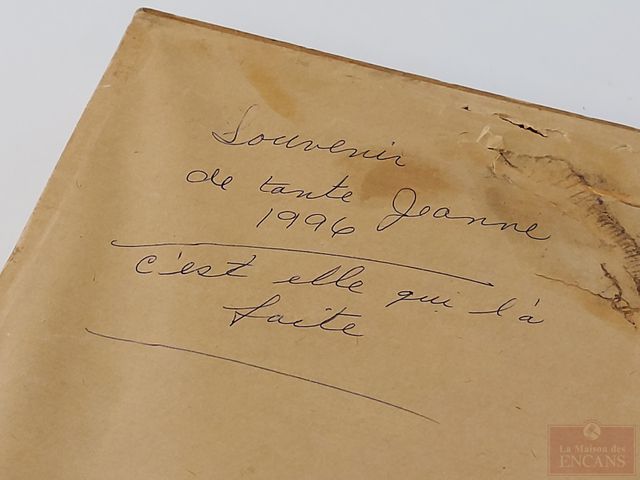 Souvenir
de tante Jeanne
1996
c'est elle qui l'à
faite
La Maison des
ENCANS